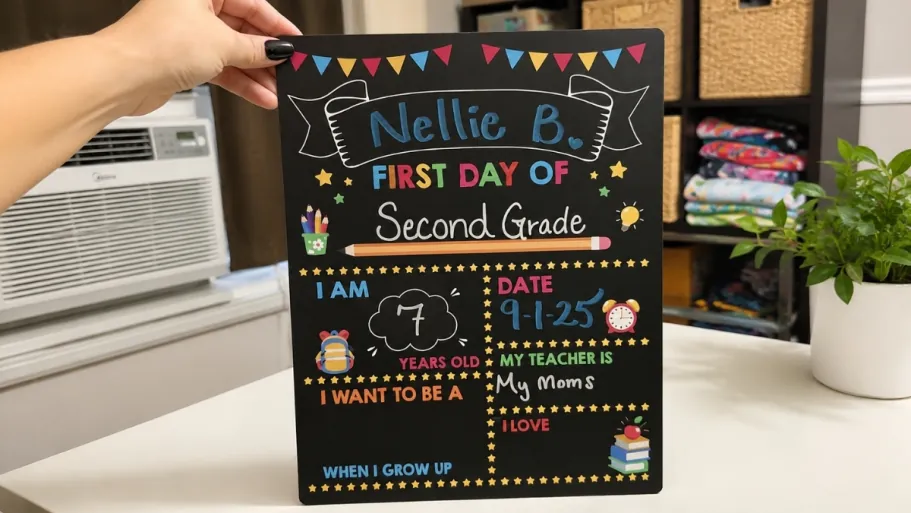 Nellie B.
FIRST DAY OF
Second Grade
I AM
7
YEARS OLD
DATE
9-1-25
MY TEACHER IS
My Moms
I WANT TO BE A
WHEN I GROW UP
I LOVE
Midea